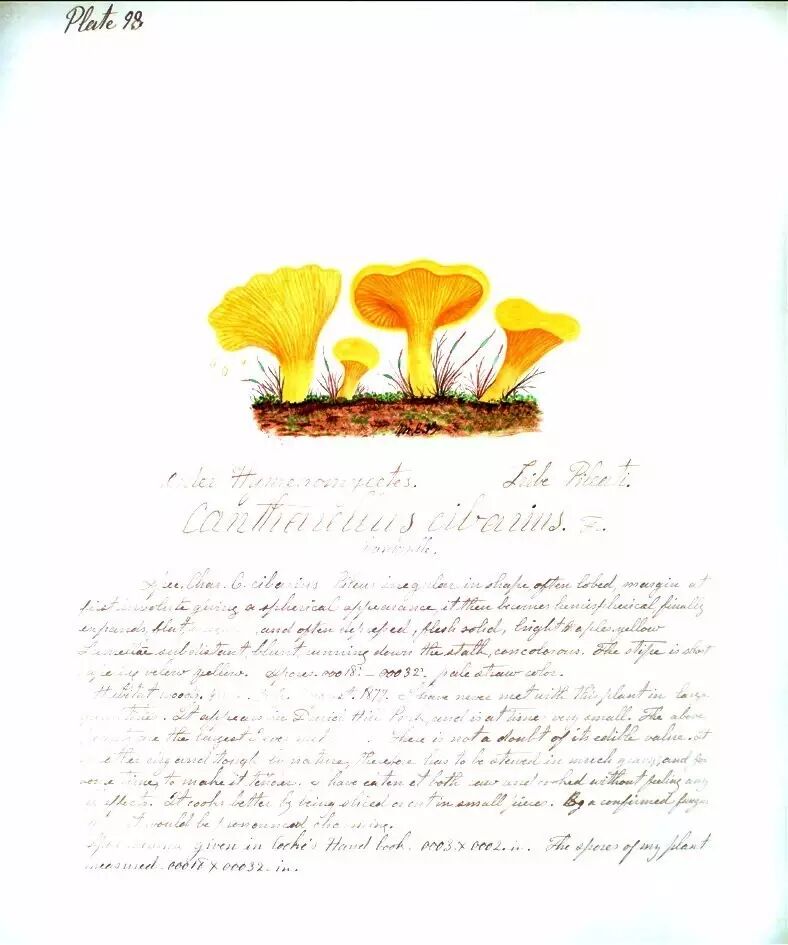 Plate 98
Order Hymenomycetes. Tribe Pileati.
Cantharellus cibarius. Fr.
Spec. Char. C. cibarius Pileus irregular in shape often lobed, margin at
first involute giving a spherical appearance, it then becomes hemispherical, finally
expands, and often depressed, flesh solid, bright Naples yellow
Lamellae subdistant, blunt running down the stalk, concolorous. The stipe is short
yellow. Spores .00018 - .00032 pale straw color.
Habitat woods, 1879. I have never met with this plant in large
quantities. It appears in Druid Hill Park, and is at times very small. The above
are the largest I ever. There is not a doubt of its edible value. It
is rather dry and tough in nature, therefore has to be stewed in much gravy, and for
some time, to make it tender. I have eaten it both raw and cooked without feeling any
ill effects. It cooks better by being sliced or cut in small pieces. By a confirmed
it would be pronounced charming.
given in Cooke's Hand book .0003 x .0002. in. The spores of my plant
measured .00018 x .00032. in.